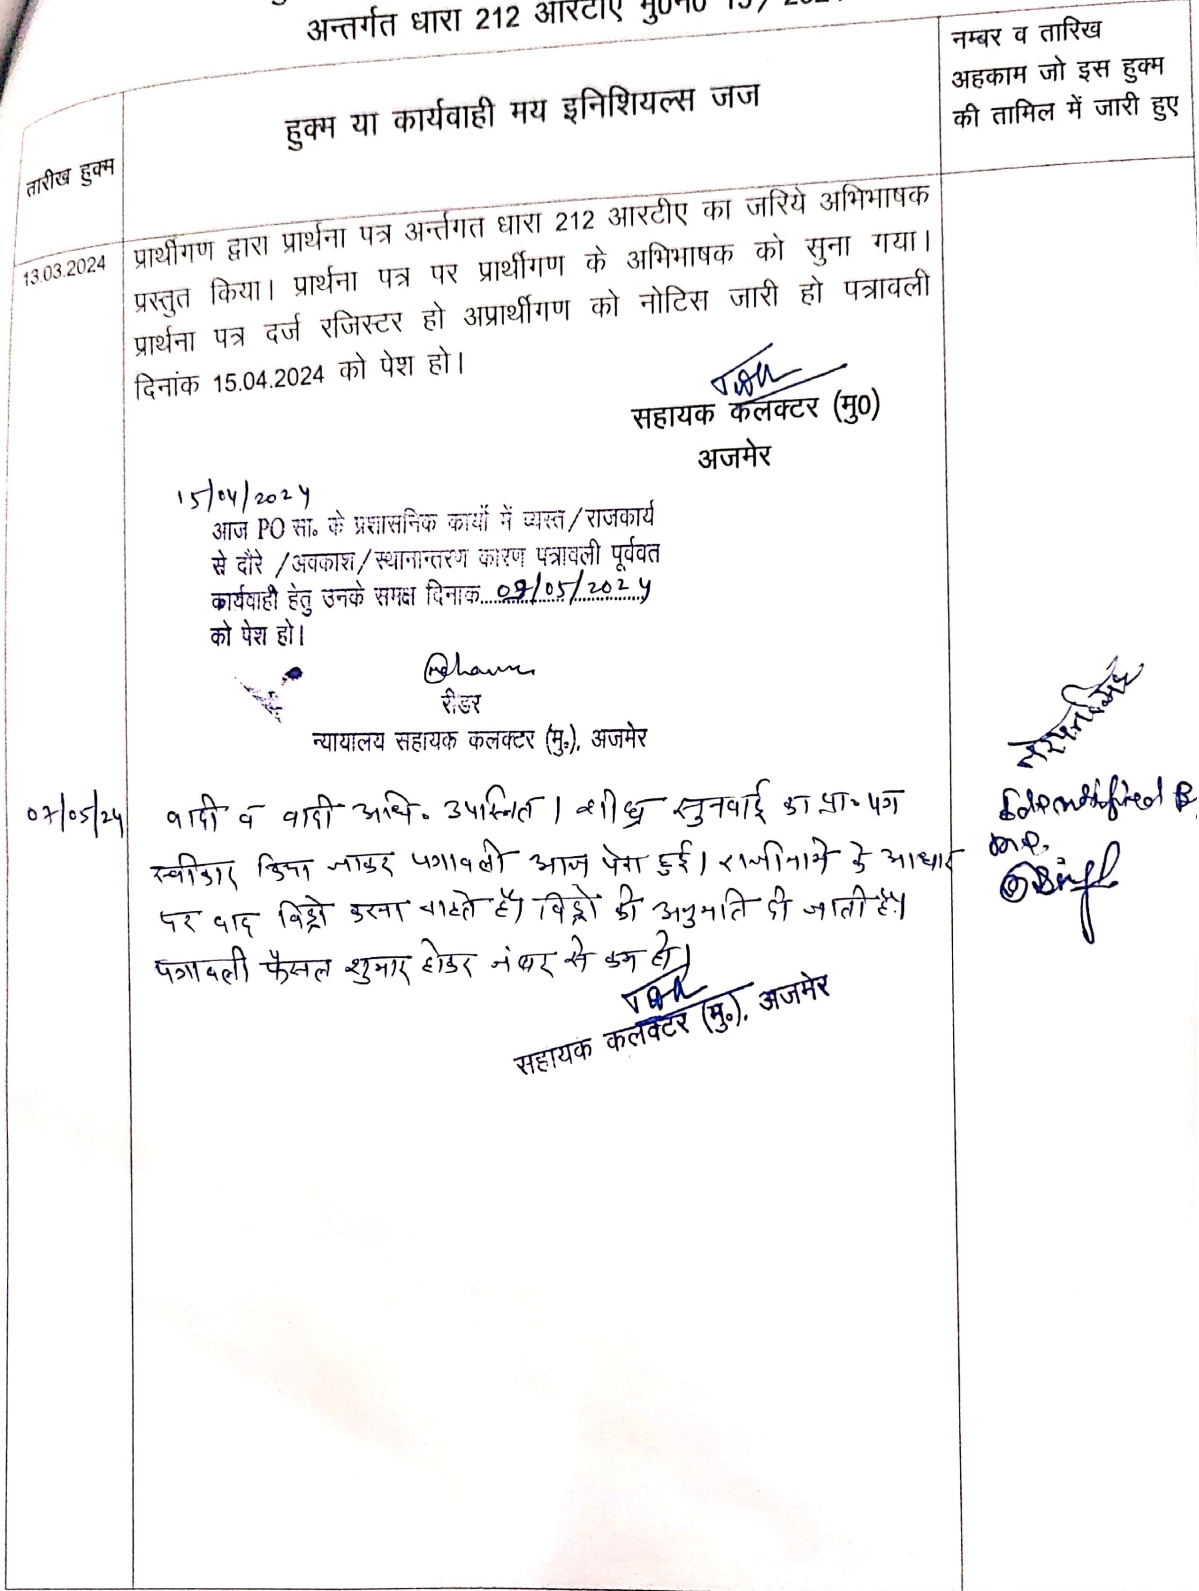 अन्तर्गत धारा 212 आरटीए मु0न0 15/ 202
तारीख हुक्म
हुक्म या कार्यवाही मय इनिशियल्स जज
नम्बर व तारिख
अहकाम जो इस हुक्म
की तामिल में जारी हुए
13.03.2024
प्रार्थीगण द्वारा प्रार्थना पत्र अर्न्तगत धारा 212 आरटीए का जरिये अभिभाषक
प्रस्तुत किया। प्रार्थना पत्र पर प्रार्थीगण के अभिभाषक को सुना गया।
प्रार्थना पत्र दर्ज रजिस्टर हो अप्रार्थीगण को नोटिस जारी हो पत्रावली
दिनांक 15.04.2024 को पेश हो।
सहायक कलक्टर (मु0)
अजमेर
15/04/2024
आज PO सा. के प्रशासनिक कार्यो में व्यस्त/राजकार्य
से दौरे /अवकाश/स्थानान्तरण कारण पत्रावली पूर्ववत
कार्यवाही हेतु उनके समक्ष दिनाक..../05/2024
को पेश हो।
रीडर
न्यायालय सहायक कलक्टर (मु.), अजमेर
07/05/24
वादी व वादी अधि. उपस्थित। शीघ्र सुनवाई का प्रा. पत्र
स्वीकार किया जाकर पत्रावली आज पेश हुई। राजीनामे के आधार
पर वाद विड्रो करना चाहते है। विड्रो की अनुमति दी जाती है।
पत्रावली फैसल शुमार होकर नंबर से कम हो।
सहायक कलक्टर (मु.), अजमेर
Identified B
me.